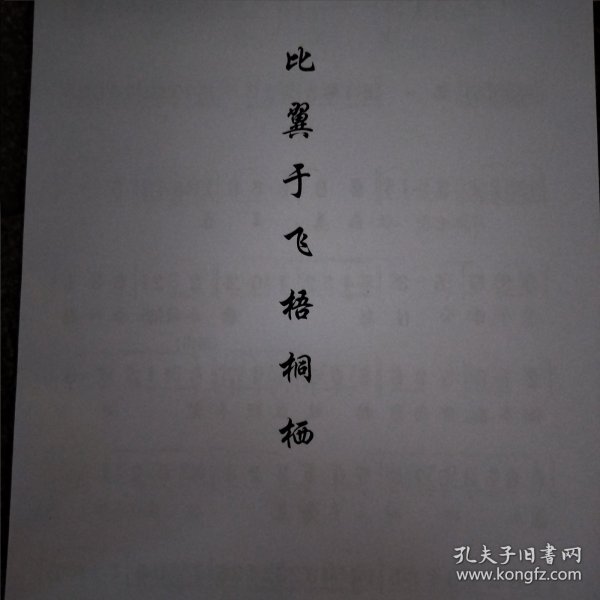 比翼于飞梧桐栖
孔夫子旧书网
www.kongfz.com